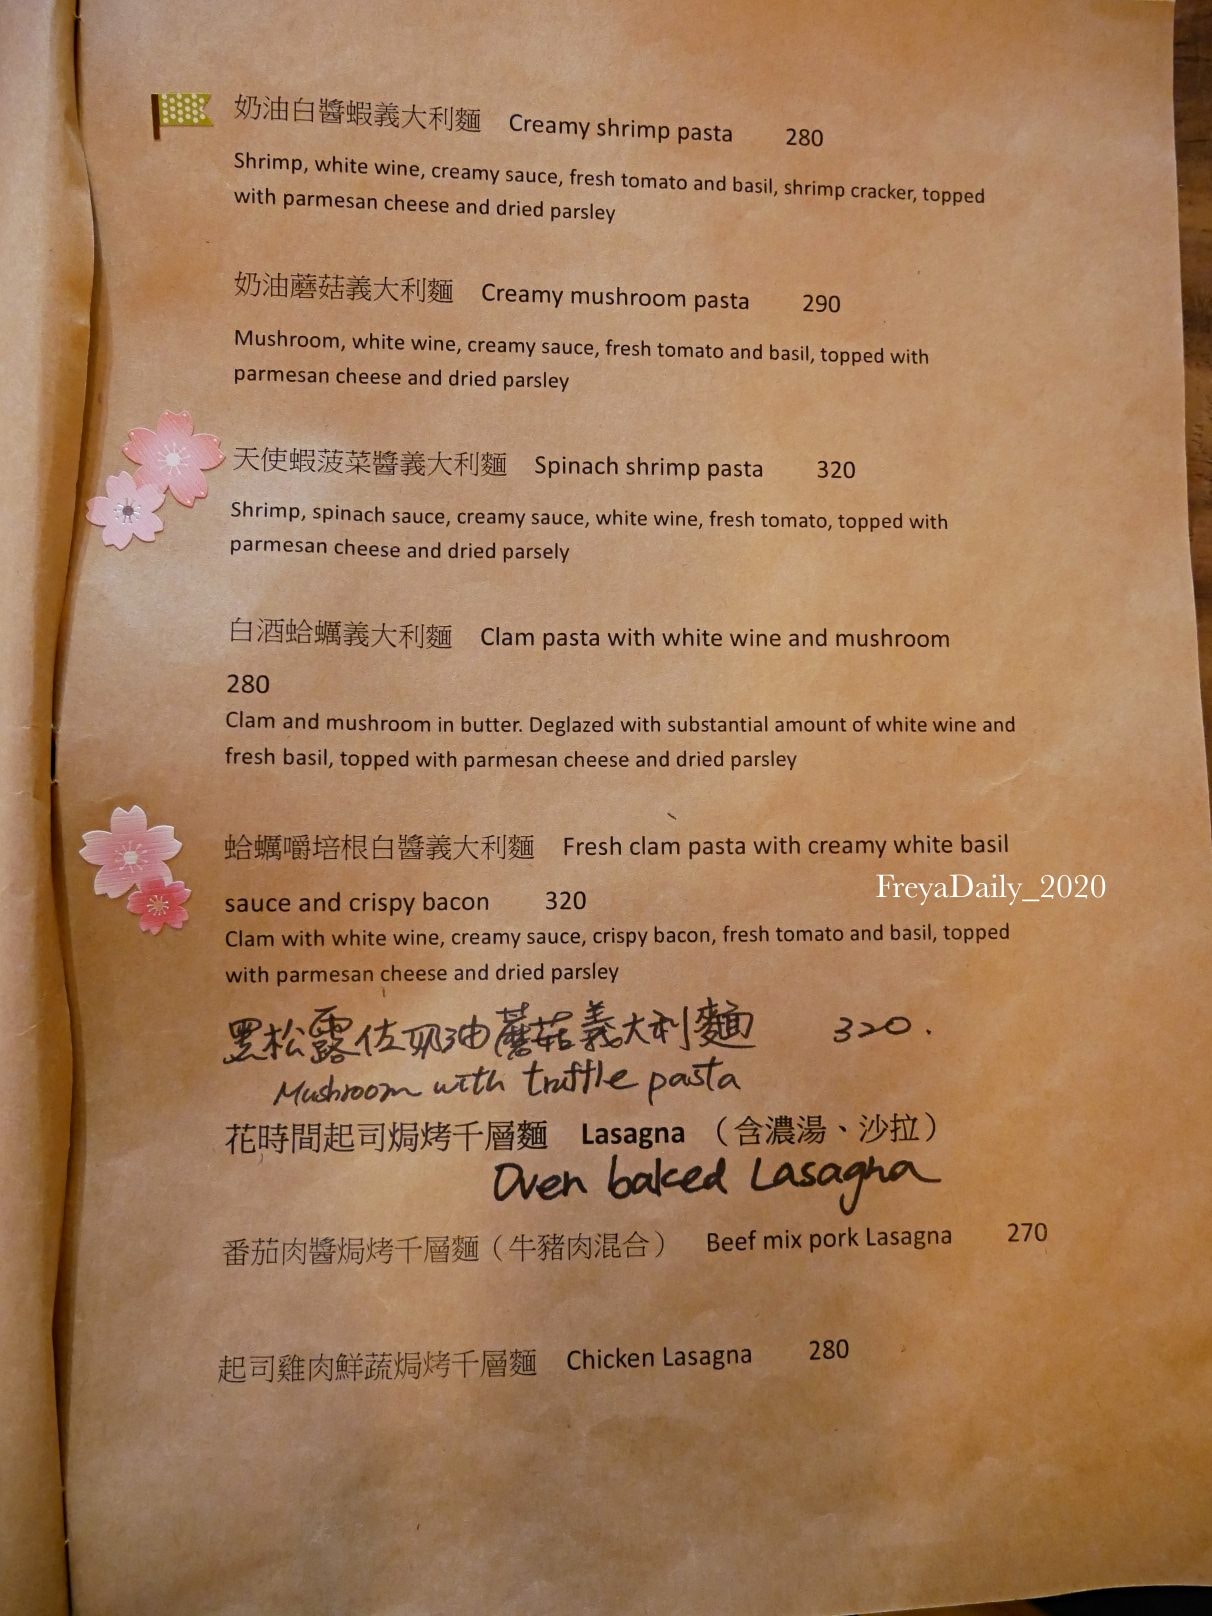 奶油白醬蝦義大利麵 Creamy shrimp pasta 280
Shrimp, white wine, creamy sauce, fresh tomato and basil, shrimp cracker, topped
with parmesan cheese and dried parsley
奶油蘑菇義大利麵 Creamy mushroom pasta 290
Mushroom, white wine, creamy sauce, fresh tomato and basil, topped with
parmesan cheese and dried parsley
天使蝦菠菜醬義大利麵 Spinach shrimp pasta 320
Shrimp, spinach sauce, creamy sauce, white wine, fresh tomato, topped with
parmesan cheese and dried parsely
白酒蛤蠣義大利麵 Clam pasta with white wine and mushroom
280
Clam and mushroom in butter. Deglazed with substantial amount of white wine and
fresh basil, topped with parmesan cheese and dried parsley
蛤蠣嚼培根白醬義大利麵 Fresh clam pasta with creamy white basil
FreyaDaily_2020
sauce and crispy bacon 320
Clam with white wine, creamy sauce, crispy bacon, fresh tomato and basil, topped
with parmesan cheese and dried parsley
黑松露佐奶油蘑菇義大利麵 320.
Mushroom with truffle pasta
花時間起司焗烤千層麵 Lasagna （含濃湯、沙拉）
Oven baked Lasagna
番茄肉醬焗烤千層麵（牛豬肉混合） Beef mix pork Lasagna 270
起司雞肉鮮蔬焗烤千層麵 Chicken Lasagna 280